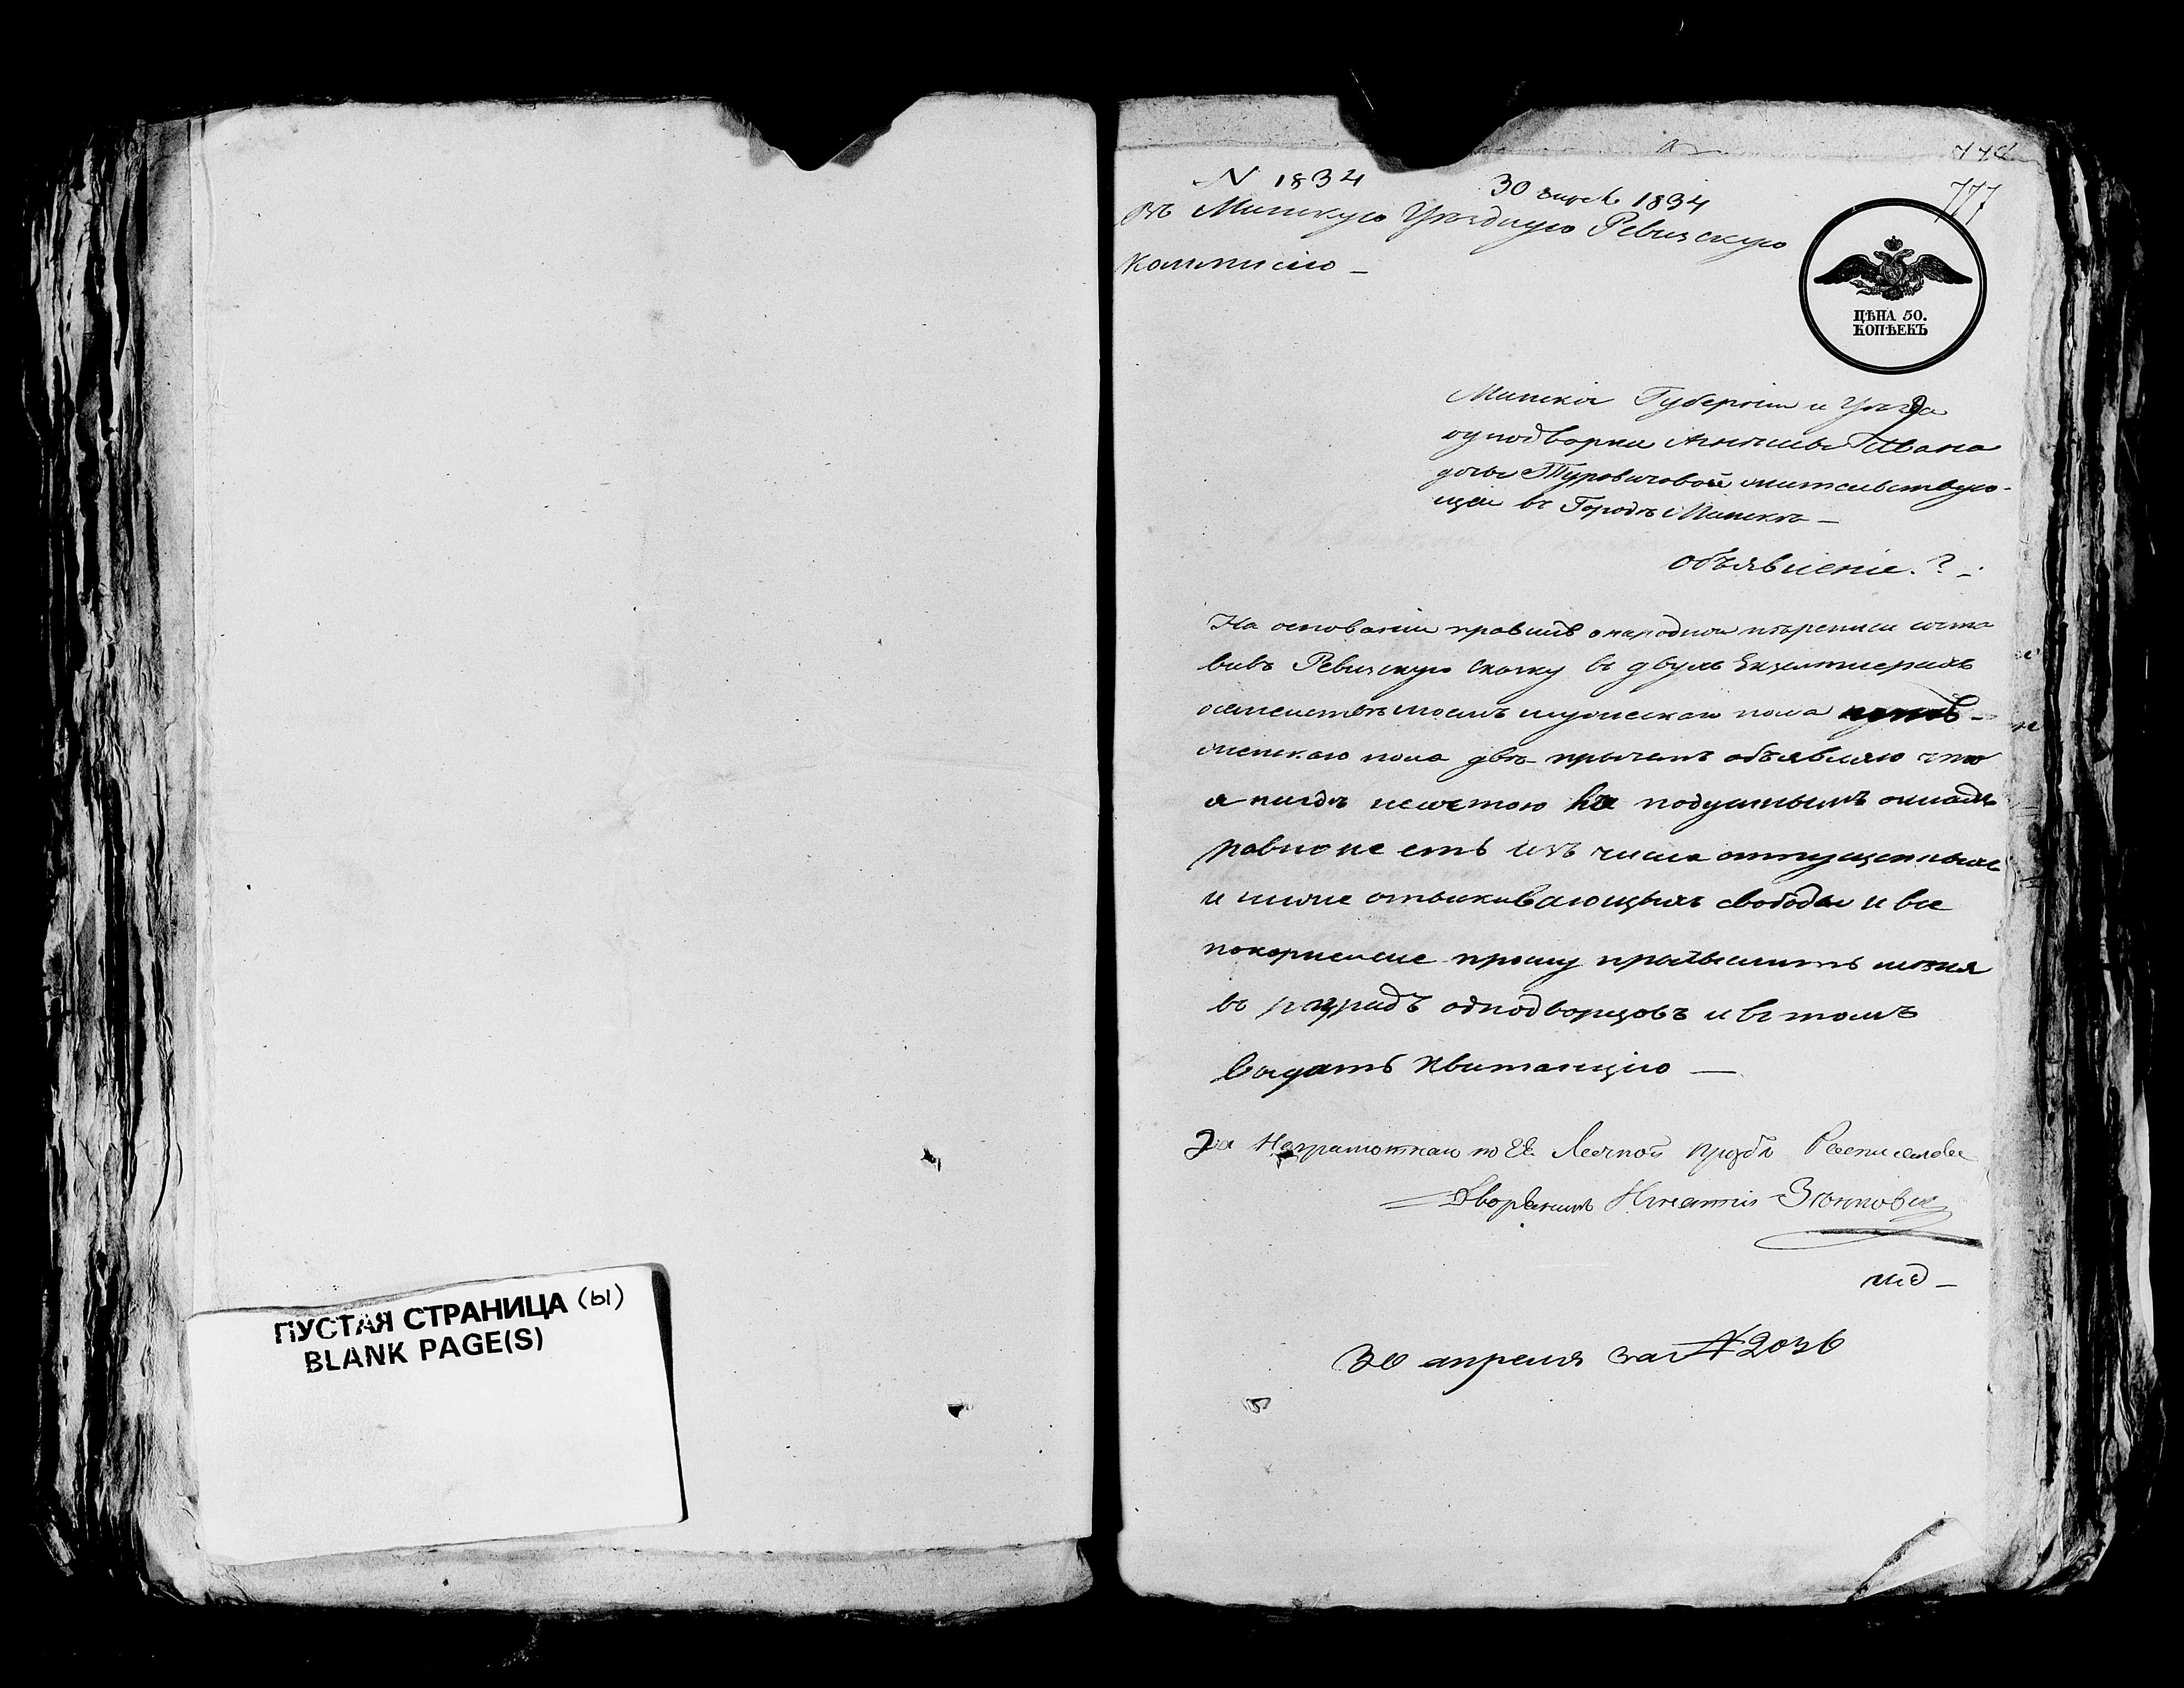 ПУСТАЯ СТРАНИЦА (ы)
BLANK PAGE(S)
777
N 1834
30 апрель 1834
Въ Минскую Уѣздную Ревизскую
Коммисію —
ЦѢНА 50.
КОПѢЕКЪ
Минской Губерніи и Уѣзда
однодворки Анели Ивана
дочь Туровичовой жительствую-
щей въ Городѣ Минскѣ —
Объявленіе. ? —
На основаніи правилъ о народной переписи соста
вивъ Ревизскую Сказку въ двухъ Екземплерахъ
о семействѣ моемъ мужескаго пола
женскаго пола двѣ при чемъ объявляю что
я нигдѣ не состою въ подушномъ окладѣ
равно не есть изъ числа отпущенныхъ
и ниже отыскивающихъ свободы и все
покорнейше прошу причислить меня
въ разрядъ однодворцовъ и въ томъ
выдать Квитанцію —
За Неграмотною по Ее Личной прозбѣ Росписался
Дворянинъ Игнатій
30 апреля за N 2036